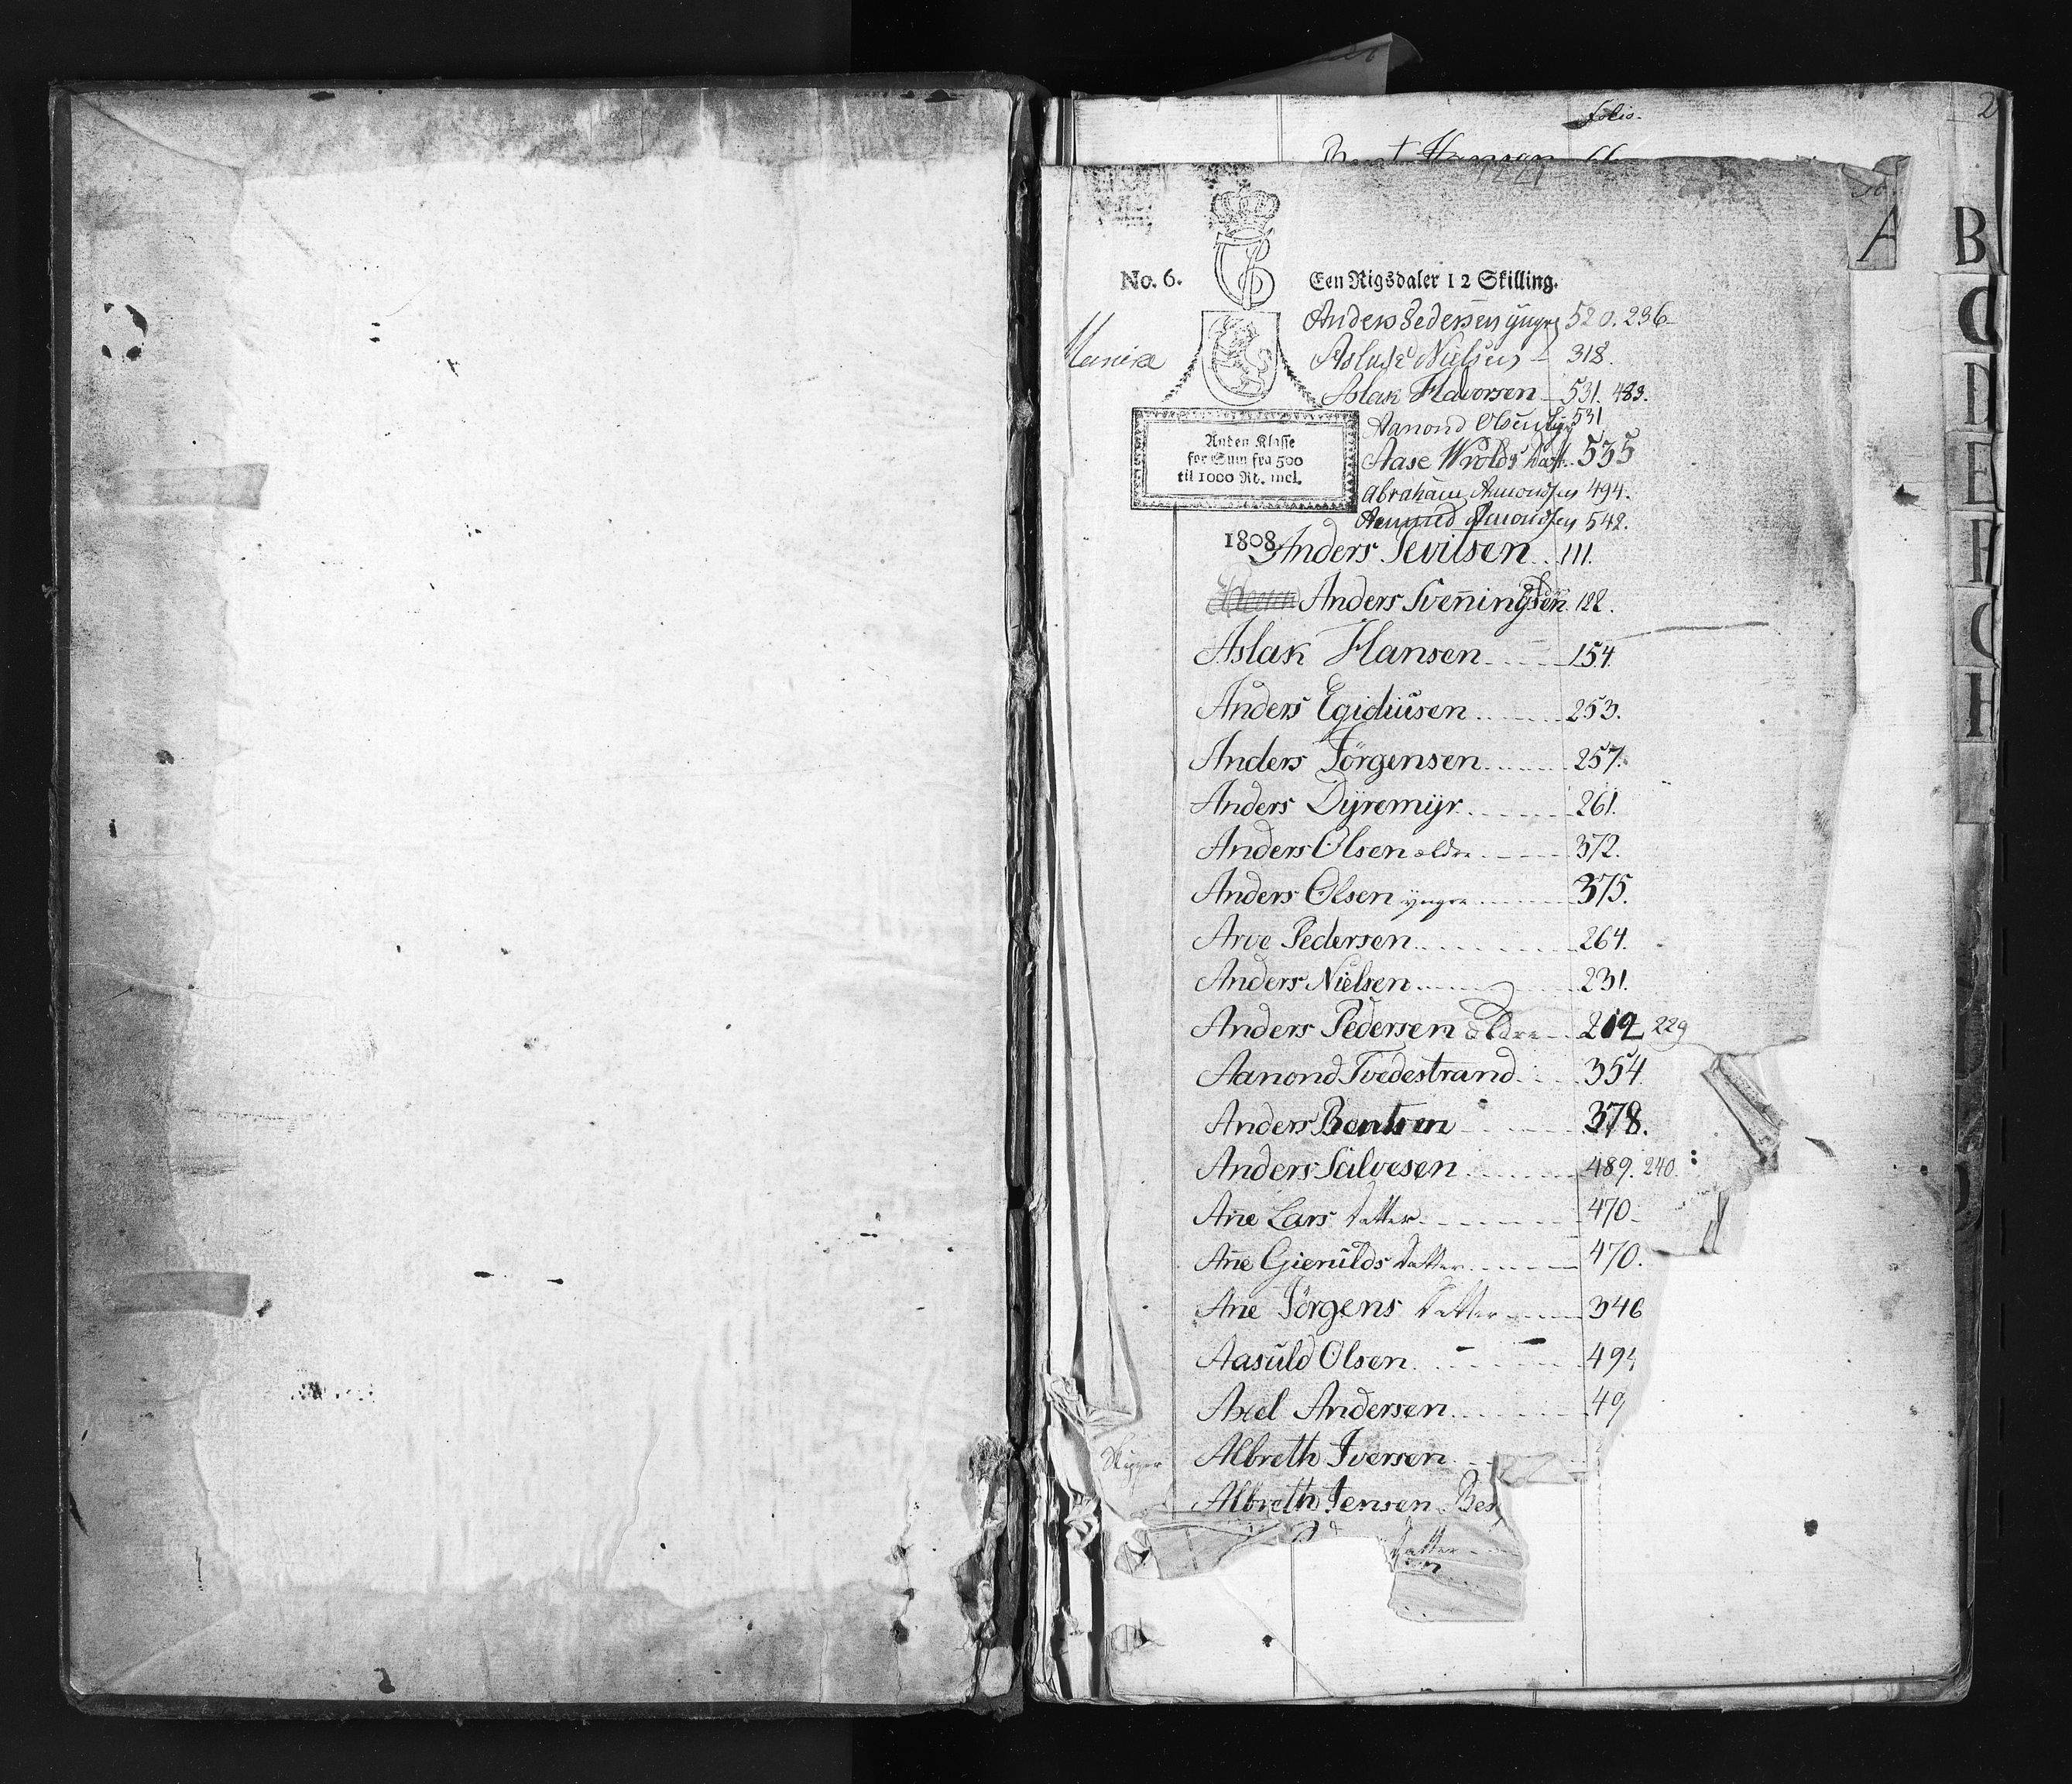 folio.
2
Bent Hansen 66
A
B
C
D
E
F
G
H
No. 6.
Een Rigsdaler 12 Skilling.
Anders Pedersen yngre 520. 236
Aslak Nielsen 318.
Aslak Halvorsen 531. 483.
Aanond Olsen 531
Anden Klasse
for Sum fra 500
til 1000 Rd. incl.
Aase Wrolds Datt. 535
Abraham Amondsen 494.
Amondsen 542.
1808
Anders Sevilsen 111.
Anders Sveningsen 122.
Aslak Hansen 154.
Anders Egidiusen 253.
Anders Jörgensen 257.
Anders Dyremyr 261.
Anders Olsen ældre 372.
Anders Olsen yngre 375.
Arve Pedersen 264.
Anders Nielsen 231.
Anders Pedersen ældre 229
Aanond Tvedestrand 354.
Anders Bentsen 378.
Anders Salvesen 489. 240.
Ane Lars Datter 470
Ane Gierulds Datter 470.
Ane Jörgens Datter 346
Aasuld Olsen 494
Axel Andersen 49
Skipper Albreth Iversen
Albreth Jensen Ber
Datter